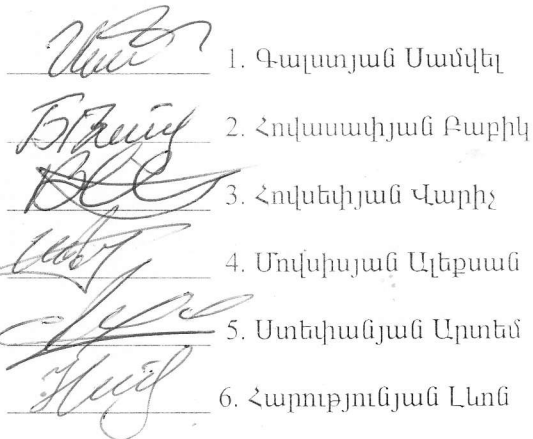 1. Գալստյան Սամվել
2. Հովասափյան Բաբիկ
3. Հովսեփյան Վարիչ
4. Մովսիսյան Ալեքսան
5. Ստեփանյան Արտեմ
6. Հարությունյան Լևոն